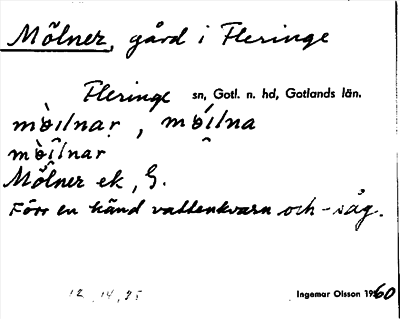 Mölner, gård i Fleringe
Fleringe sn, Gotl. n. hd, Gotlands län.
mòilnar, móilna
mòîlnar
Mölner ek, G.
Förr en känd vattenkvarn och -såg.
12.14, 95
Ingemar Olsson 1960